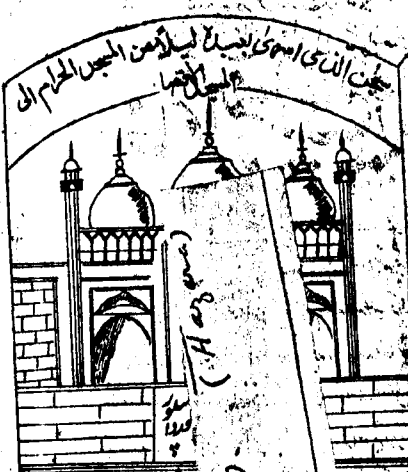 سبحٰن الذی اسریٰ بعبدہٖ لیلاً من المسجد الحرام الی
المسجد الاقصا
(Hazara)